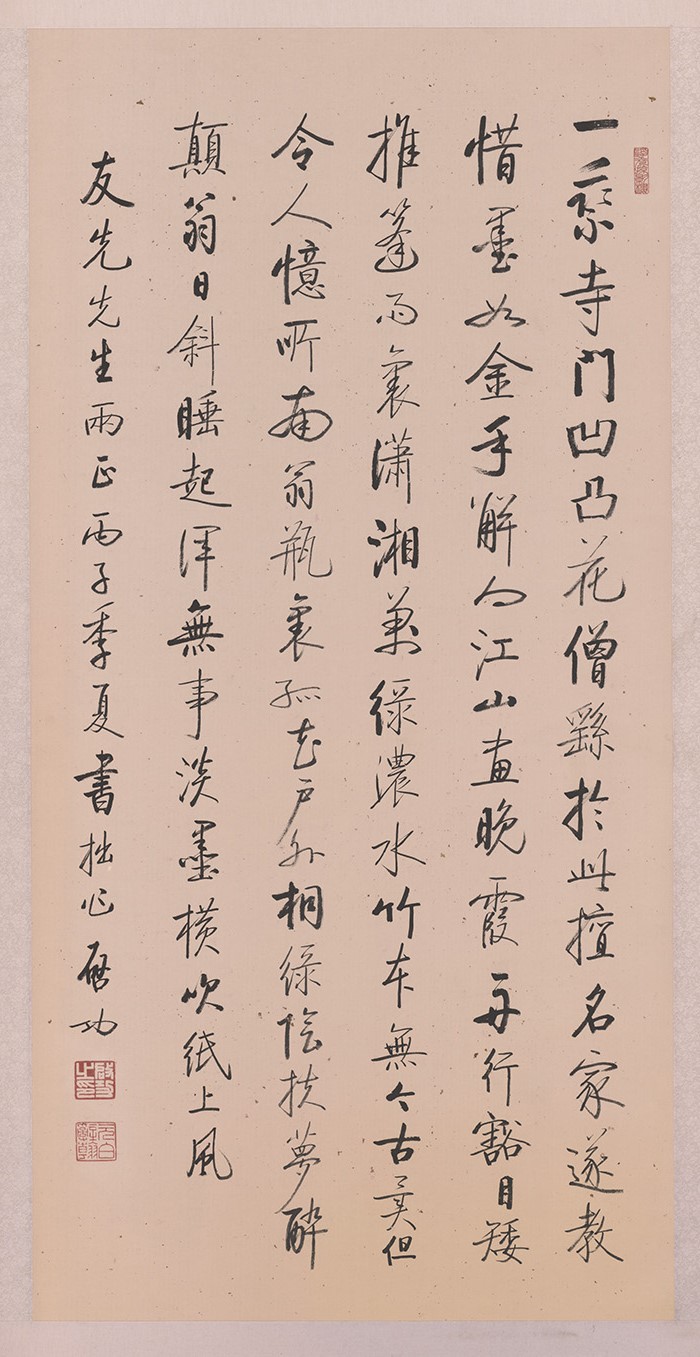 一乘寺門凹凸花僧繇於此擅名家遂教
惜墨如金手解向江山畫晚霞舟行豁目矮
推篷雨裏瀟湘萬綠濃水竹本無今古異但
令人憶所南翁瓶裏孤花戶外桐綠陰扶夢醉
顛翁日斜睡起渾無事淡墨橫吹紙上風
友先先生兩正丙子季夏書拙作啓功
啓功之印